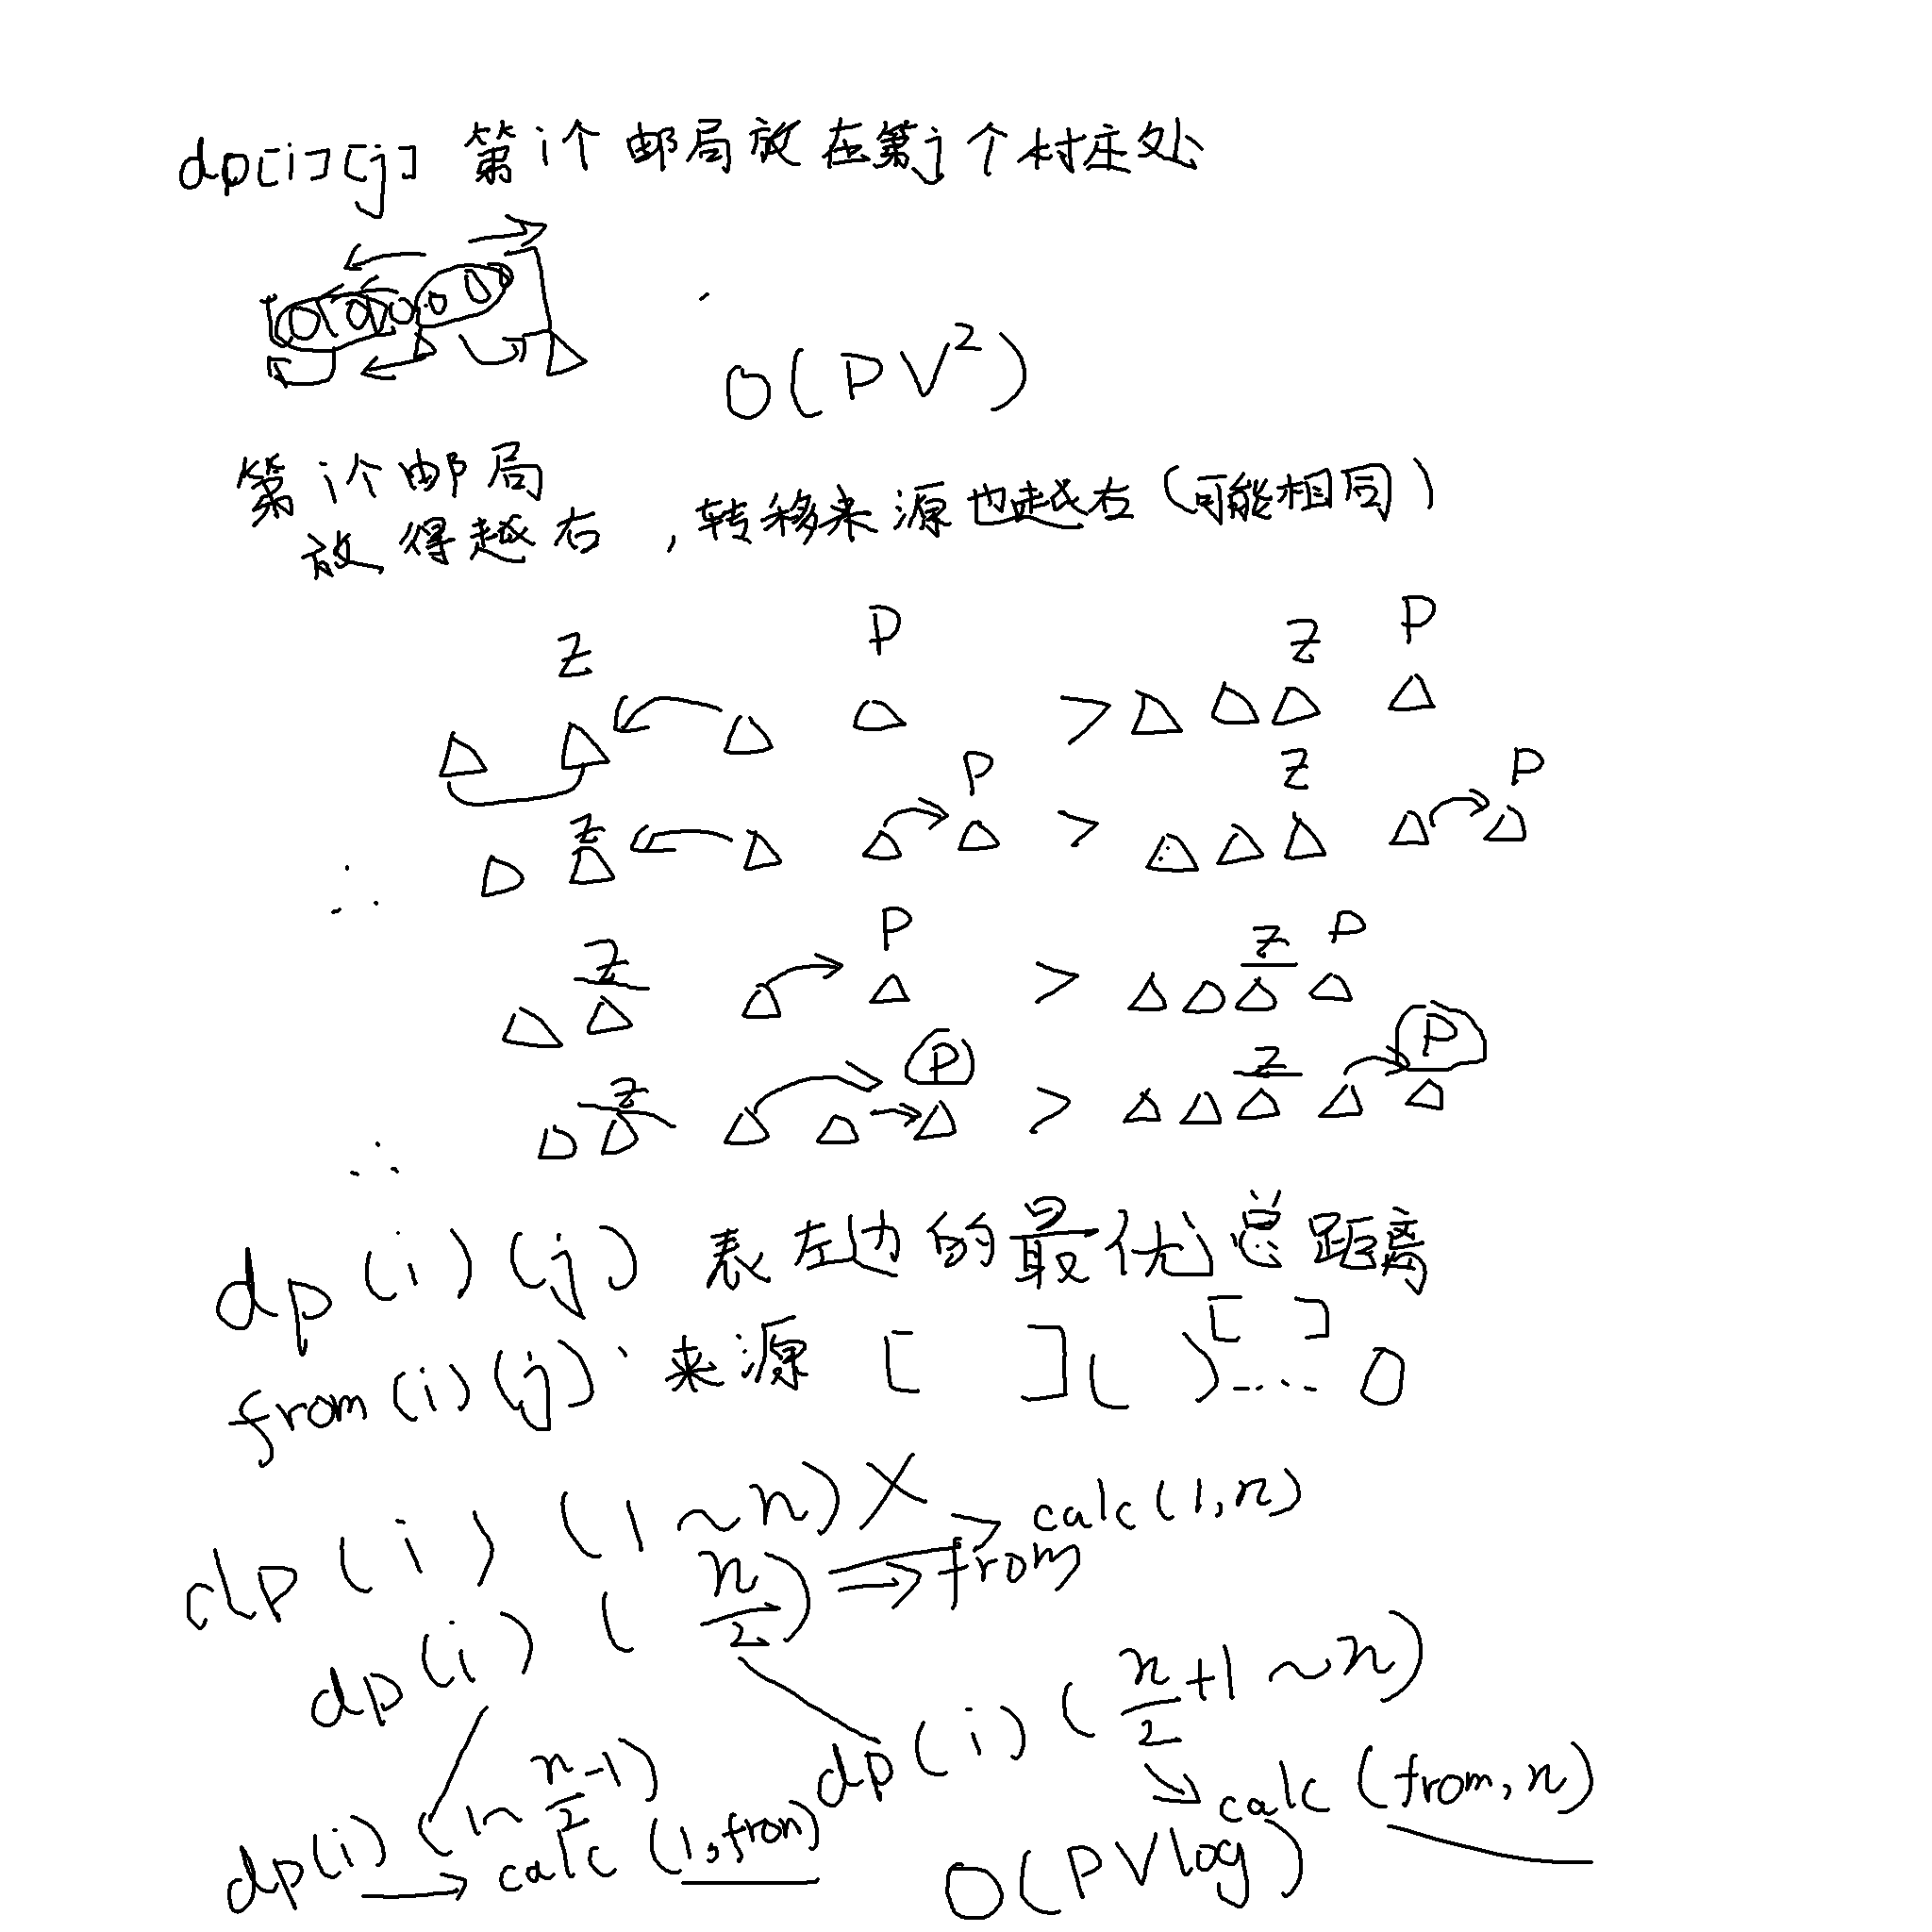 dp[i][j] 第i个邮局放在第j个村庄处
O(PV²)
第i个邮局
放得越右,转移来源也越右(可能相同)
Z P > Z P
Z P > Z P
∴
Z P > Z P
Z P > Z P
∴
dp(i)(j) 表左边的最优总距离
from(i)(j) 来源 [ ]( )[ ]....0
dp(i)(1~n)X calc(1,n)
dp(i)(n/2) ⇒ from
dp(i)(n/2+1~n)
calc(from,n)
dp(i)(1~n/2-1)
→ calc(1,from)
O(PVlog)